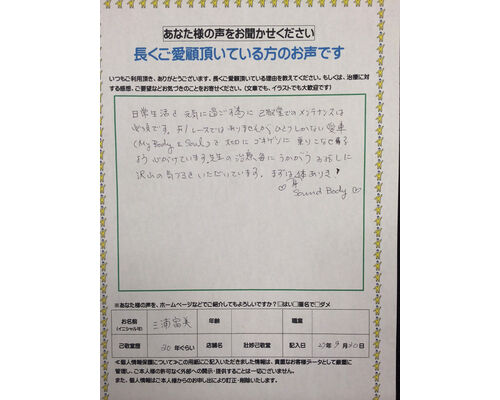 あなた様の声をお聞かせください
長くご愛顧頂いている方のお声です
いつもご利用頂き、ありがとうございます。長くご愛顧頂いている理由を教えてください。もしくは、治療に対
する感想、ご要望などお気づきのことをお寄せください。(文章でも、イラストでも大歓迎です)
日常生活を元気に過ごす為に己敬堂でのメンテナンスは
必須です。F1レースではありませんがひとつしかない愛車
(My Body & Soul)を大切にゴキゲンに乗りこなせる
よう心がけています。先生の治療、毎にうかがうお話しに
沢山の気づきをいただいています。まずは体ありき!
Sound Body
※あなた様の声を、ホームページなどでご紹介してもよろしいですか?□はい□匿名で□ダメ
お名前 三浦富美 年齢 職業
(イニシャル可)
己敬堂歴 20年ぐらい 店舗名 壮妙己敬堂 記入日 27年9月30日
≪個人情報保護について≫この用紙にご記入いただきました情報は、貴重なお客様データとして厳重に
管理し、ご本人様の許可なく外部への開示・提供することは一切ございません。
また、個人情報はご本人様からのお申し出により訂正・削除いたします。